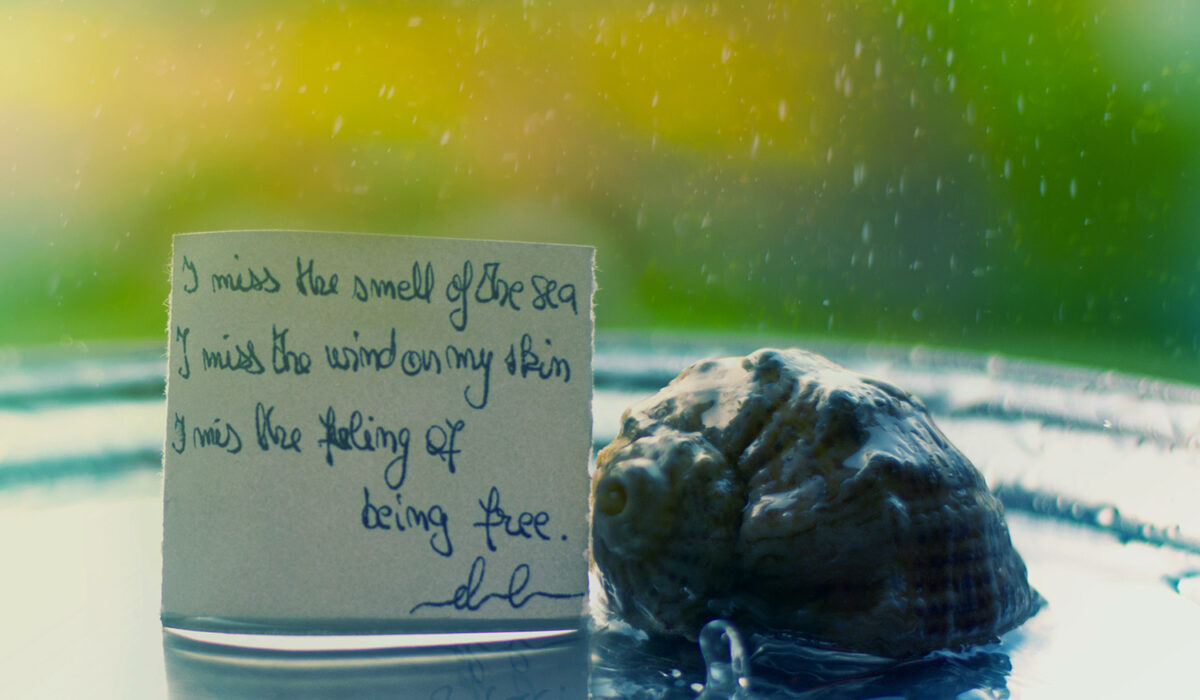 I miss the smell of the sea
I miss the wind on my skin
I mis the feling of
being free.